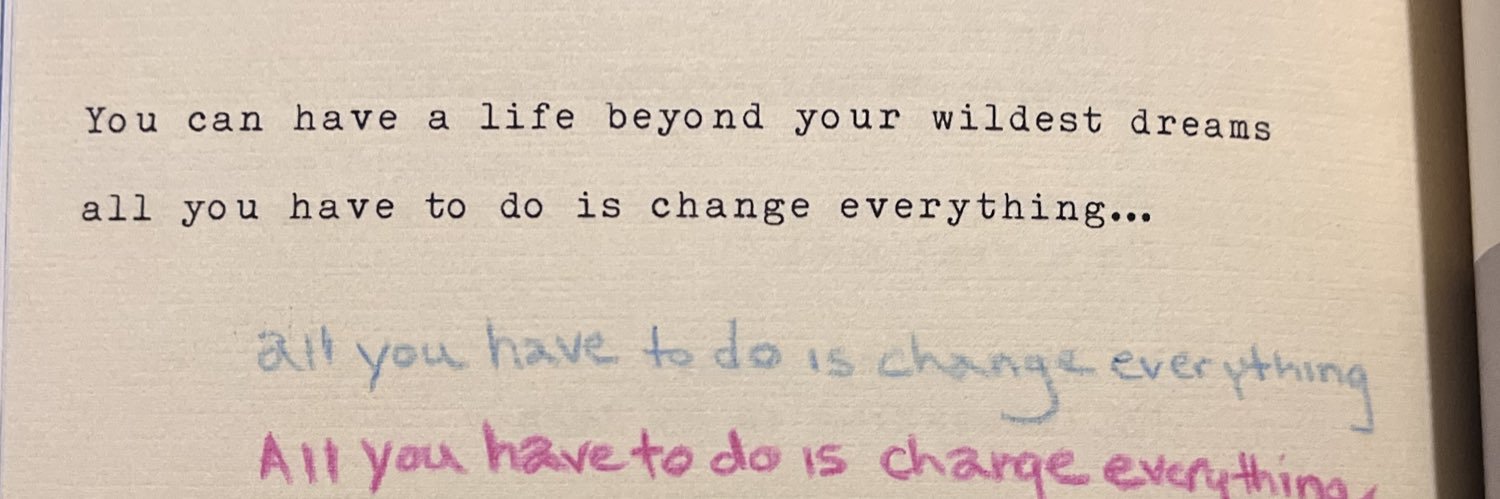 You can have a life beyond your wildest dreams
all you have to do is change everything...
all you have to do is change everything
All you have to do is change everything